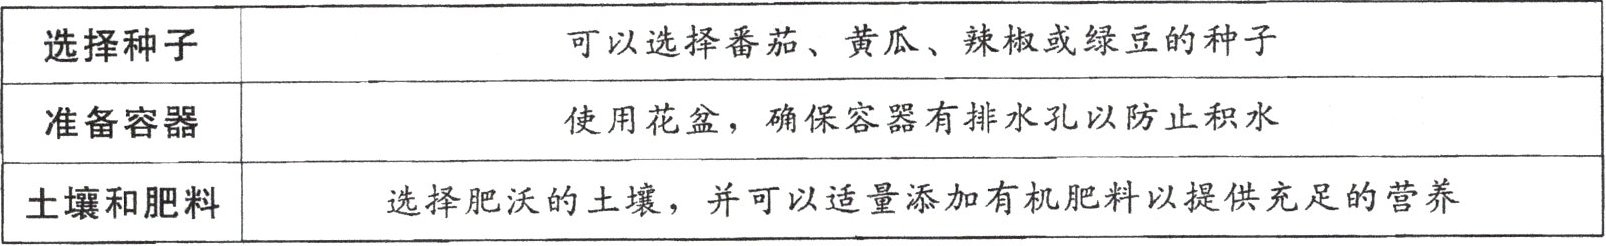 选择种子 可以选择番茄、黄瓜、辣椒或绿豆的种子
准备容器 使用花盆，确保容器有排水孔以防止积水
土壤和肥料 选择肥沃的土壤，并可以适量添加有机肥料以提供充足的营养